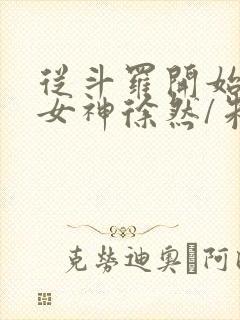 從斗羅開始
女神徐然/
克勞迪奧 阿